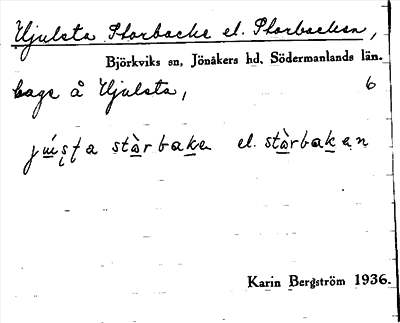 Hjulsta Storbacke el. Storbacken,
Björkviks sn, Jönåkers hd, Södermanlands län.
bage å Hjulsta, 6
stàrbakan
Karin Bergström 1936.